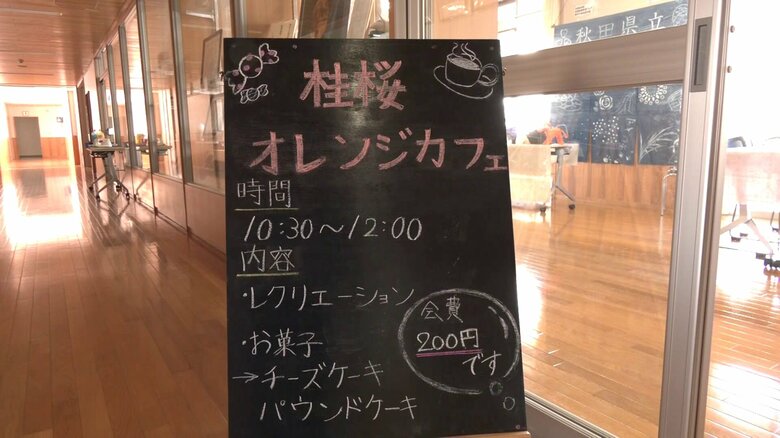 秋田県立
桂桜
オレンジカフェ
時間
10:30～12:00
内容
・レクリエーション
・お菓子
→チーズケーキ
パウンドケーキ
会費
200円
です